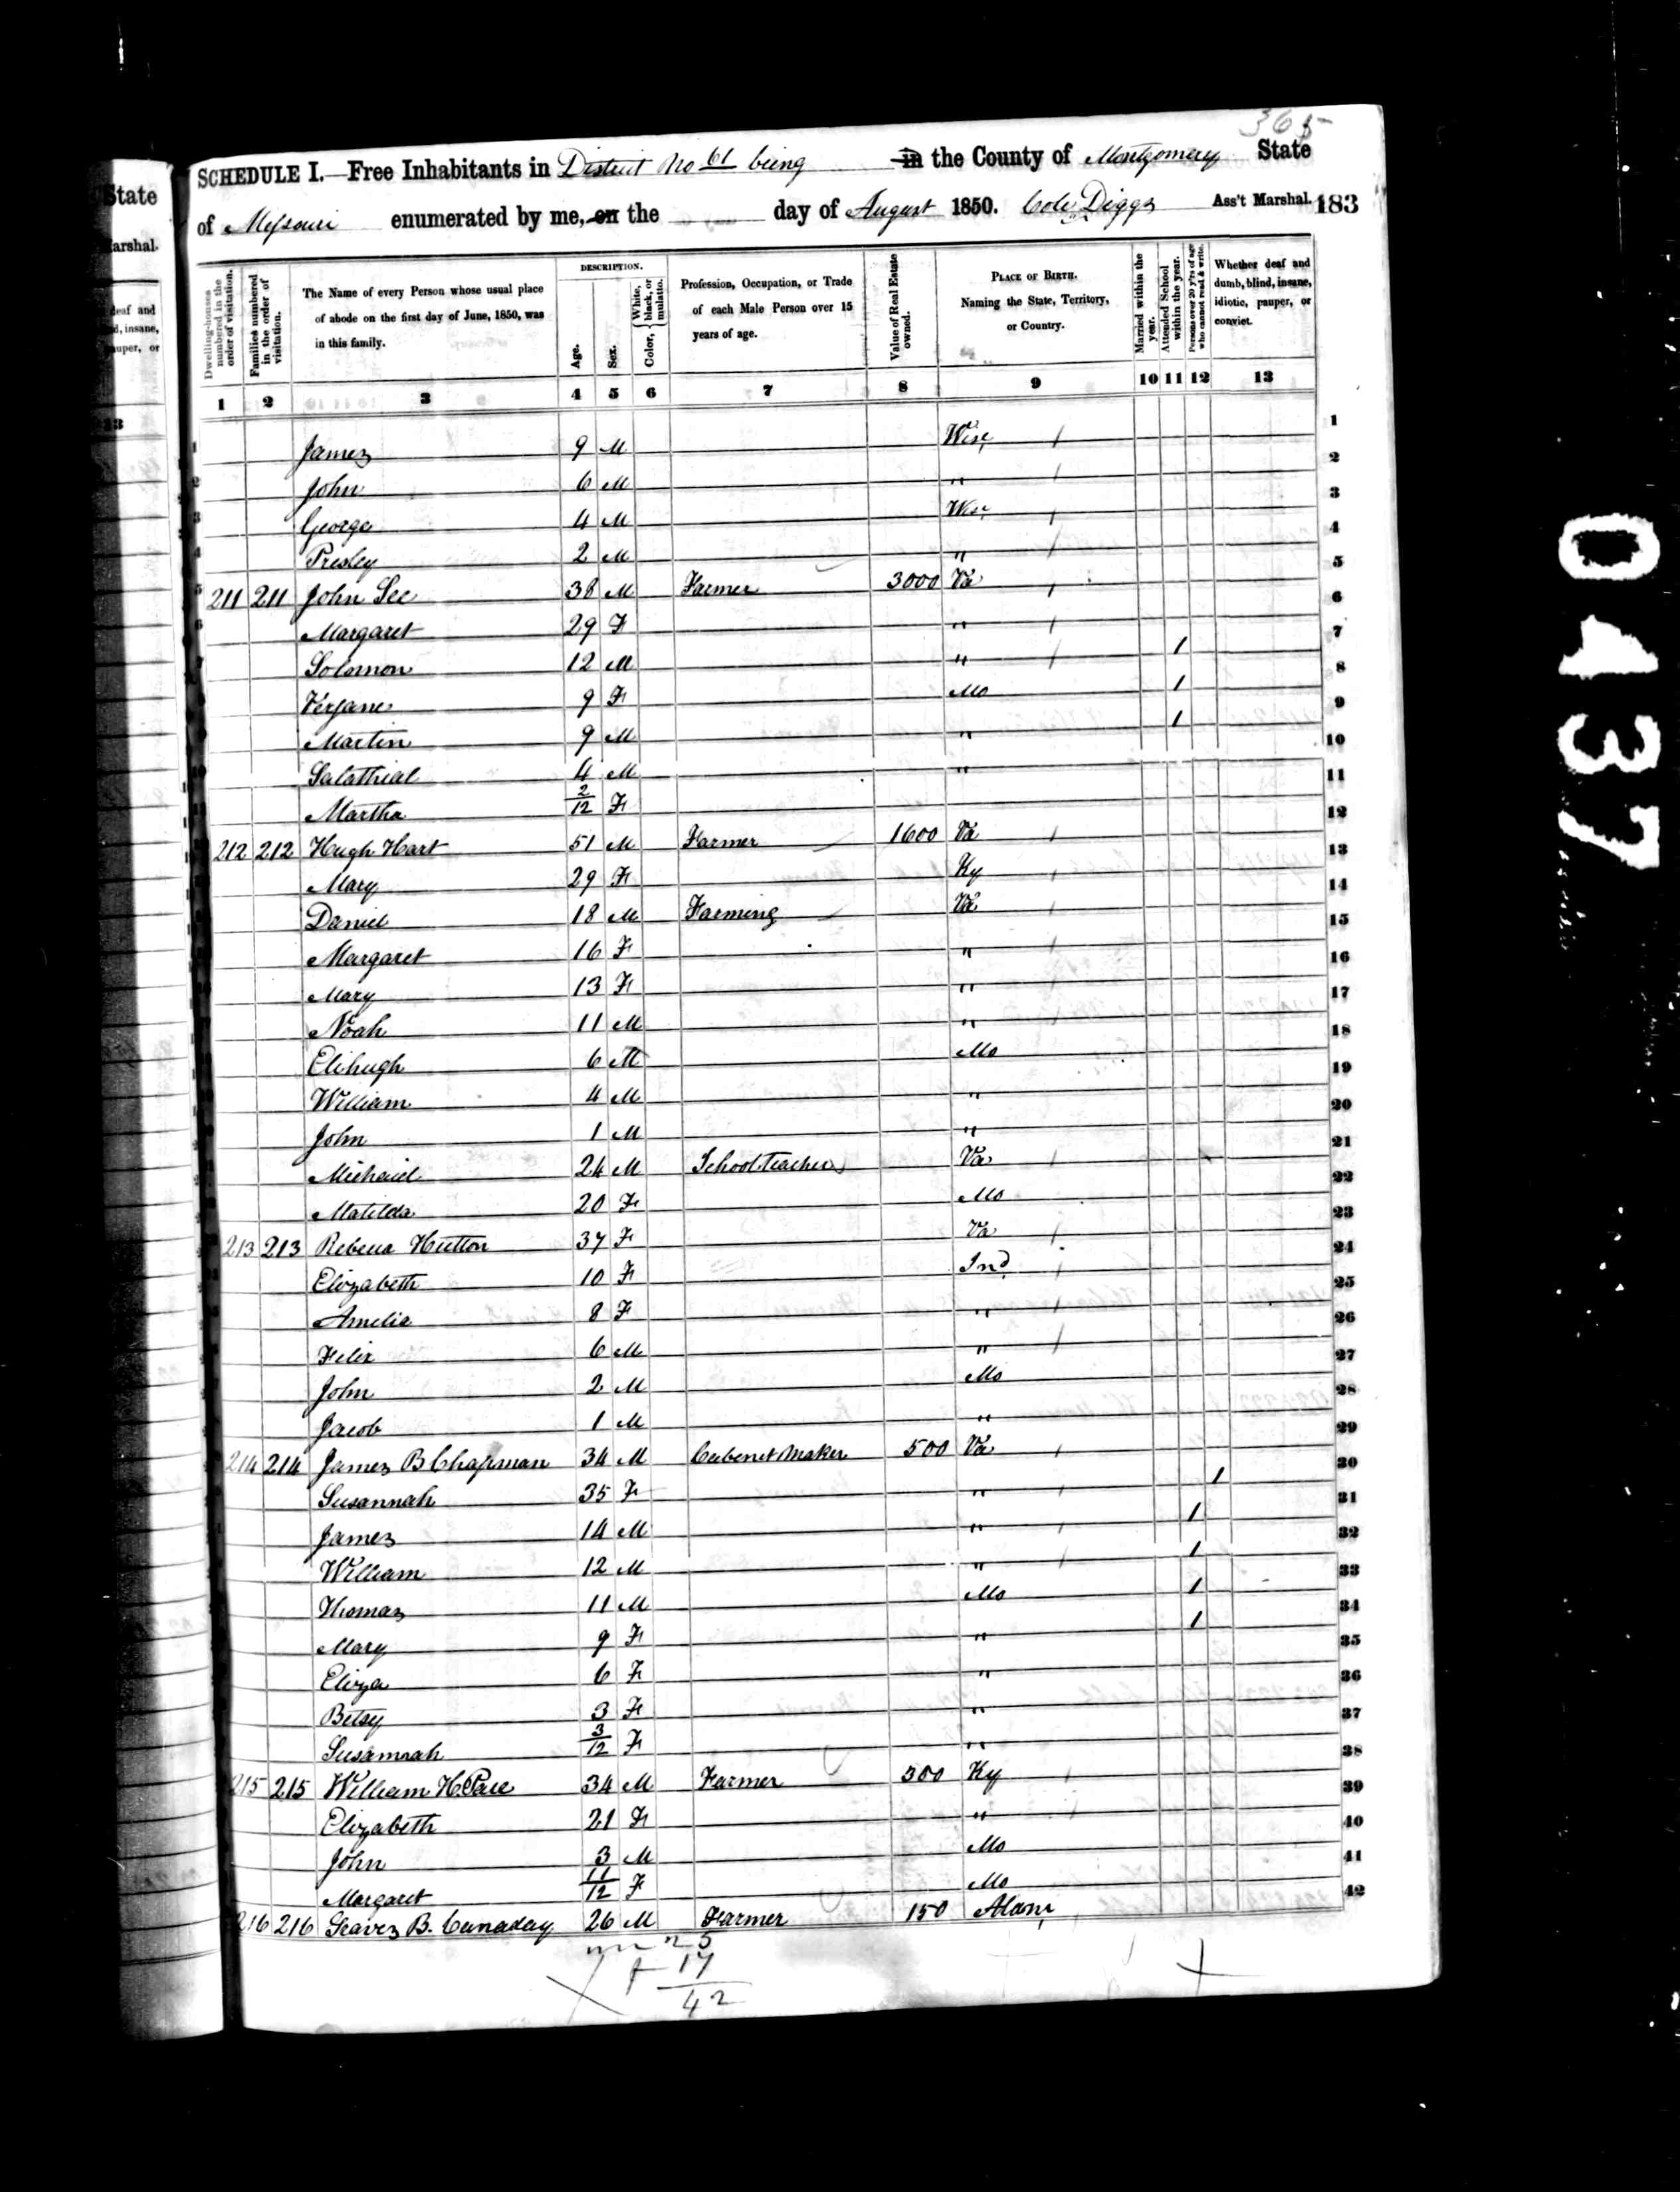 365
SCHEDULE I.—Free Inhabitants in District No 61 being in the County of Montgomery State
of Missouri enumerated by me, on the day of August 1850. Cole Diggs Ass't Marshal. 183
Dwelling-houses numbered in the order of visitation.
Families numbered in the order of visitation.
The Name of every Person whose usual place of abode on the first day of June, 1850, was in this family.
DESCRIPTION.
Age.
Sex.
Color, { White, black, or mulatto.
Profession, Occupation, or Trade of each Male Person over 15 years of age.
Value of Real Estate owned.
PLACE OF BIRTH. Naming the State, Territory, or Country.
Married within the year.
Attended School within the year.
Persons over 20 y'rs of age who cannot read & write.
Whether deaf and dumb, blind, insane, idiotic, pauper, or convict.
1 2 3 4 5 6 7 8 9 10 11 12 13
1 James 9 M Wisc 1
2 John 6 M " 2
3 George 4 M Wisc 3
4 Presley 2 M " 4
5 211 211 John See 38 M Farmer 3000 Va 5
6 Margaret 29 F " 6
7 Solomon 12 M " 1 7
Verjane 9 F Mo 1 8
Martin 9 M " 1 9
Salathial 4 M " 10
Martha 2/12 F 11
212 212 Hugh Hart 51 M Farmer 1600 Va 12
Mary 29 F Ky 13
Daniel 18 M Farming Va 14
Margaret 16 F " 15
Mary 13 F " 16
Noah 11 M " 17
Elihugh 6 M Mo 18
William 4 M " 19
John 1 M " 20
Michael 24 M School Teacher Va 21
Matilda 20 F Mo 22
213 213 Rebecca Hutton 37 F Va 23
Elizabeth 10 F Ind 24
Amelia 8 F " 25
Felix 6 M " 26
John 2 M Mo 27
Jacob 1 M " 28
214 214 James B Chapman 34 M Cabenet Maker 500 Va 29
Susannah 35 F " 1 30
James 14 M " 1 31
William 12 M " 1 32
Thomas 11 M Mo 1 33
Mary 9 F " 1 34
Eliza 6 F " 35
Betsy 3 F " 36
Susannah 3/12 F " 37
215 215 William H. Pace 34 M Farmer 300 Ky 38
Elizabeth 21 F " 39
John 3 M Mo 40
Margaret 11/12 F Mo 41
216 216 B. Canaday 26 M Farmer 150 42
25
17
42
0437
State
Marshal.
deaf and
d, insane,
auper, or